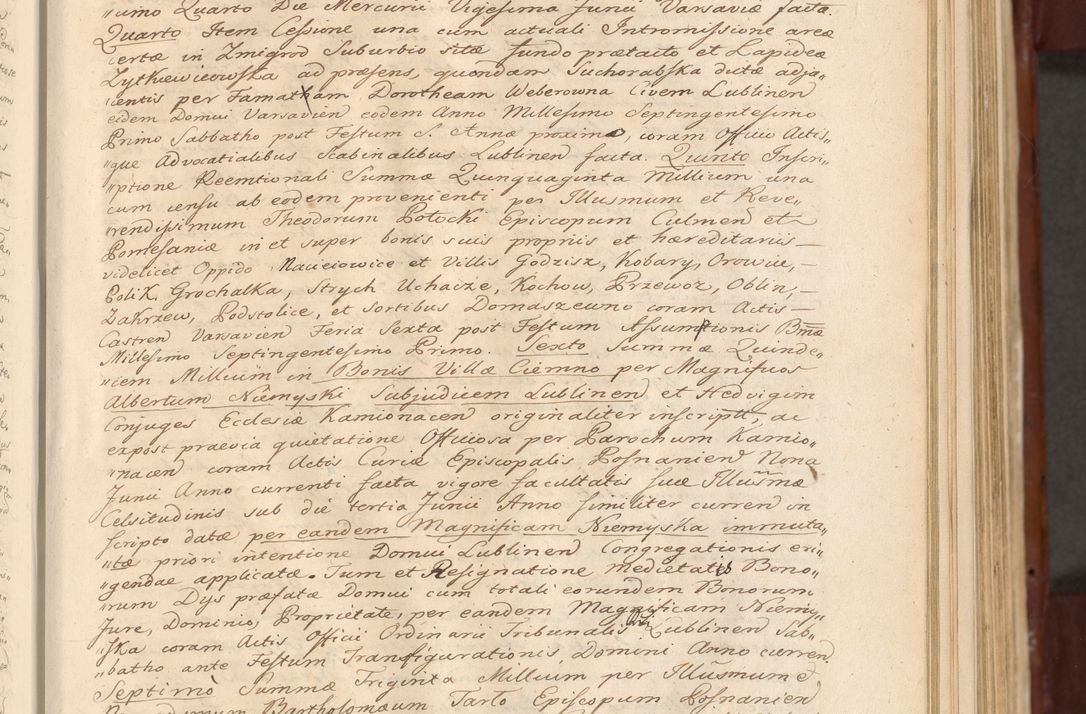 "cimo Quarto Die Mercurii Vigesima Junii Varsaviæ facta.
Quarto Item Cessione una cum actuali Intromissione areæ
certæ in Zmigrod Suburbio sitæ fundo prætacto et Lapideæ
Zytkiewiczowska ad præsens, quondam Suchorabska dictæ adja„
„centis per Famatham Dorotheam Weberowna Civem Lublinen
eidem Domui Varsavien eodem Anno Millesimo Septingentesimo
Primo Sabbatho post Festum S. Annæ proximo, coram Officio Actis„
„que Advocatialibus Scabinalibus Lublinen facta. Quinto Inscri„
„ptione Reemtionali Summæ Quinquaginta Millium una
cum censu ab eodem provenienti per Illusmum et Reve„
„rendissimum Theodorum Potocki Episcopum Culmen et
Pomesaniæ in et super bonis suis propriis et hæreditariis —
videlicet Oppido Maciejowice et Villis Godzisz, Kobary, Orowice, —
Polik, Grochalka, Strych Uchacze, Kochow, Przewoz, Oblin, —
Zakrzew, Podstolice, et Sortibus Domaszewno coram Actis —
Castren Varsavien Feria Sexta post Festum Assumptionis Bmæ
Millesimo Septingentesimo Primo. Sexto Summæ Quinde„
„cem Millium in Bonis Villæ Ciemno per Magnificos
Albertum Niemyski Subjudicem Lublinen et Hedvigim
Conjuges Ecclesiæ Kamionacen originaliter inscriptt, ac
expost prævia quietatione Officiosa per Parochum Kamio„
„nacen coram Actis Curiæ Episcopalis Posnanien Nona
Junii Anno currenti facta vigore facultatis suæ Illusmæ
Celsitudinis sub die tertia Junii Anno similiter curren in
scripto datæ per eandem Magnificam Niemyska immuta„
„tæ priori intentione Domui Lublinen Congregationis eri„
„gendae applicatæ. Tum et Resignatione Medietatis Bono„
„rum Dys præfatæ Domui cum totali eorundem Bonorum
Jure, Dominio, Proprietate, per eandem Magnificam Niemy„
„ska coram Actis Officii Ordinarii Tribunalis Lublinen Sab„
„batho ante Festum Transfigurationis Domini Anno curren.
Septimo Summæ Triginta Millium per Illusmum et
Bartholomæum Tarlo Episcopum Posnanien